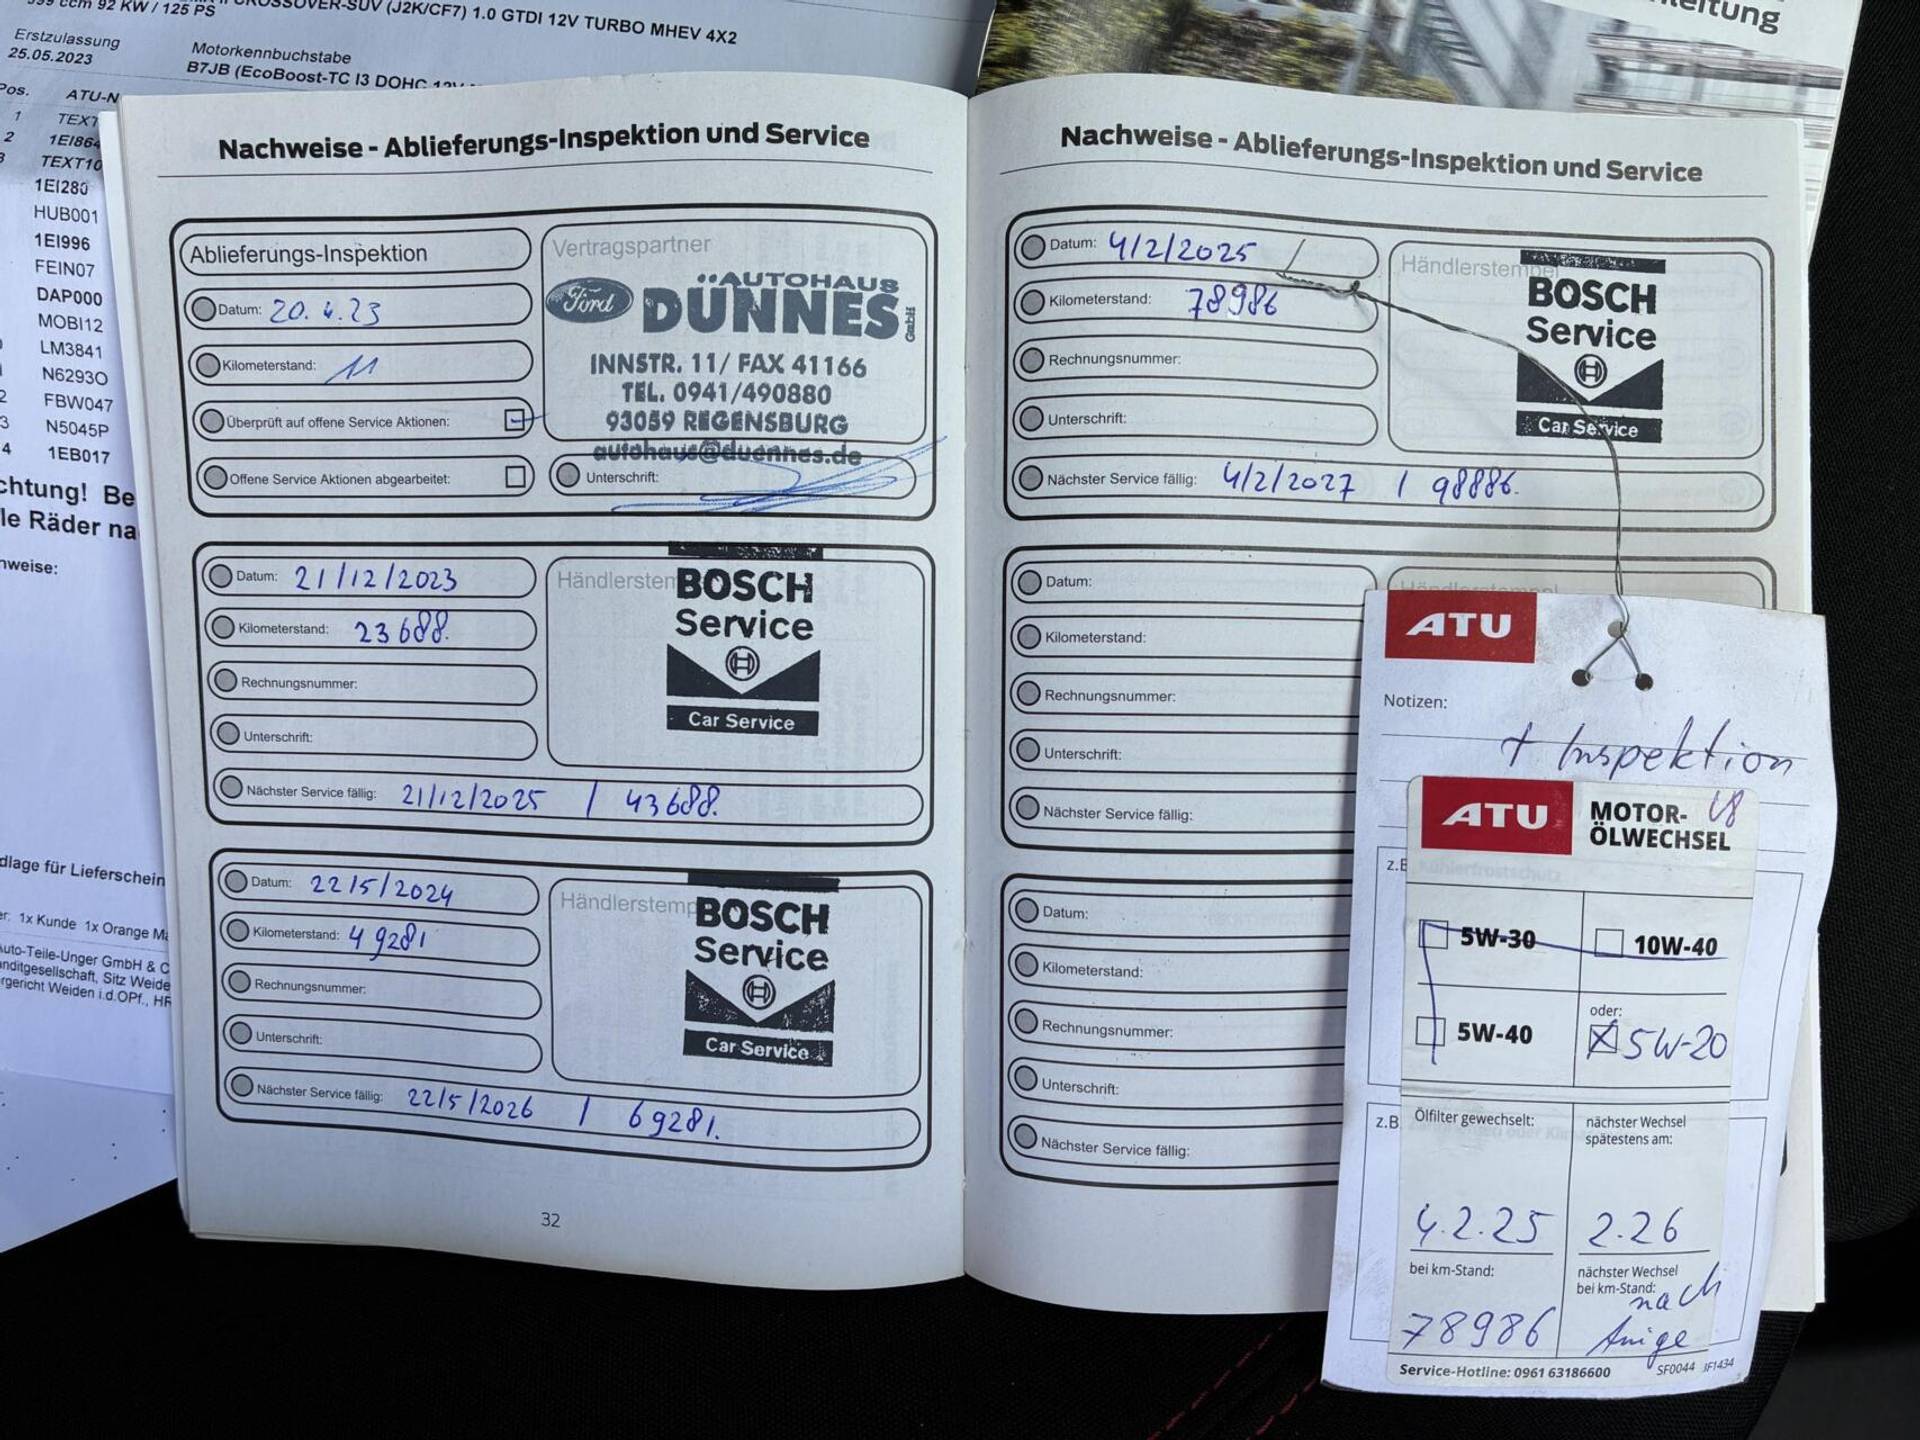 999 ccm 92 KW / 125 PS
CROSSOVER-SUV (J2K/CF7) 1.0 GTDI 12V TURBO MHEV 4X2
Erstzulassung
25.05.2023
Motorkennbuchstabe
B7JB (EcoBoost-TC I3 DOHC 12V
Pos.
ATU-N
1 TEXT
2 1EI864
3 TEXT10
1EI280
HUB001
1EI996
FEIN07
DAP000
MOBI12
LM3841
N6293O
FBW047
N5045P
4 1EB017
chtung! Be
le Räder na
nweise:
dlage für Lieferschein
er: 1x Kunde 1x Orange Ma
Auto-Teile-Unger GmbH & C
anditgesellschaft, Sitz Weide
rgericht Weiden i.d.OPf., HR
leitung
Nachweise - Ablieferungs-Inspektion und Service
Ablieferungs-Inspektion
Datum: 20.4.23
Kilometerstand: 11
Überprüft auf offene Service Aktionen:
Offene Service Aktionen abgearbeitet:
Vertragspartner
Ford AUTOHAUS
DÜNNES GmbH
INNSTR. 11/ FAX 41166
TEL. 0941/490880
93059 REGENSBURG
autohaus@duennes.de
Unterschrift:
Datum: 21/12/2023
Kilometerstand: 23688.
Rechnungsnummer:
Unterschrift:
Nächster Service fällig: 21/12/2025 / 43688.
Händlerstem
BOSCH
Service
Car Service
Datum: 22/5/2024
Kilometerstand: 49281
Rechnungsnummer:
Unterschrift:
Nächster Service fällig: 22/5/2026 / 69281.
Händlerstemp
BOSCH
Service
Car Service
32
Nachweise - Ablieferungs-Inspektion und Service
Datum: 4/2/2025
Kilometerstand: 78986
Rechnungsnummer:
Unterschrift:
Nächster Service fällig: 4/2/2027 / 98886.
Händlerstempel
BOSCH
Service
Car Service
Datum:
Kilometerstand:
Rechnungsnummer:
Unterschrift:
Nächster Service fällig:
Händlerstempel
Datum:
Kilometerstand:
Rechnungsnummer:
Unterschrift:
Nächster Service fällig:
ATU
Notizen:
+ Inspektion
z.B
Kühlerfrostschutz
z.B.
ATU
MOTOR-
ÖLWECHSEL
5W-30
10W-40
5W-40
oder:
5W-20
Ölfilter gewechselt:
nächster Wechsel
spätestens am:
4.2.25
2.26
bei km-Stand:
nächster Wechsel
bei km-Stand:
nach
78986
Anige
Service-Hotline: 0961 63186600
SF0044